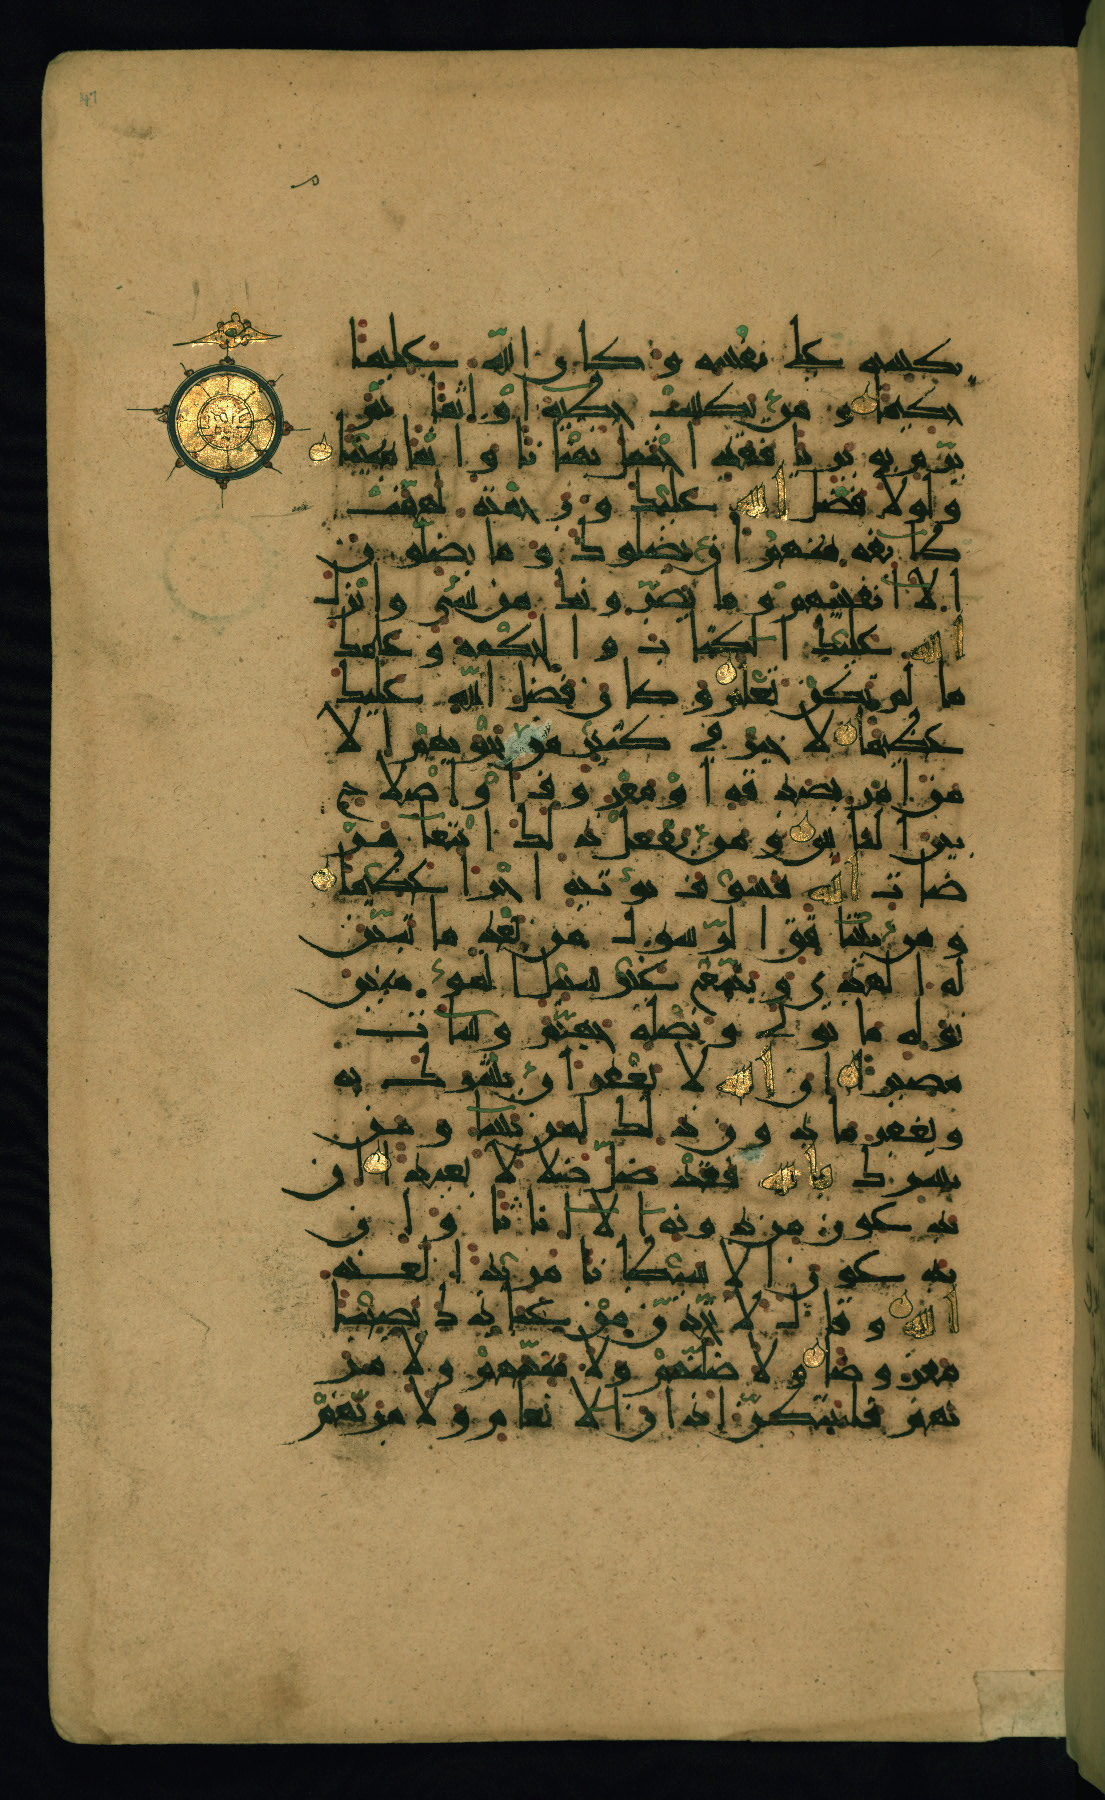 47
يكسبه على نفسه وكان الله عليما
حكيما ومن يكسب خطيئة او اثما ثم
يرم به بريئا فقد احتمل بهتانا واثما مبينا
ولولا فضل الله عليك ورحمته لهمت
طائفة منهم ان يضلوك وما يضلون
الا انفسهم وما يضرونك من شيء وانزل
الله عليك الكتاب والحكمة وعلمك
ما لم تكن تعلم وكان فضل الله عليك
عظيما لا خير في كثير من نجويهم الا
من امر بصدقة او معروف او اصلاح
بين الناس ومن يفعل ذلك ابتغا مر
ضات الله فسوف نؤتيه اجرا عظيما
ومن يشاقق الرسول من بعد ما تبين
له الهدى ويتبع غير سبيل المؤمنين
نوله ما تولى ونصله جهنم وساءت
مصيرا ان الله لا يغفر ان يشرك به
ويغفر ما دون ذلك لمن يشاء ومن
يشرك بالله فقد ضل ضلالا بعيدا ان
يدعون من دونه الا اناثا وان
يدعون الا شيطانا مريدا لعنه
الله وقال لاتخذن من عبادك نصيبا
مفروضا ولاضلنهم ولامنينهم ولامر
نهم فليبتكن اذان الانعام ولامرنهم